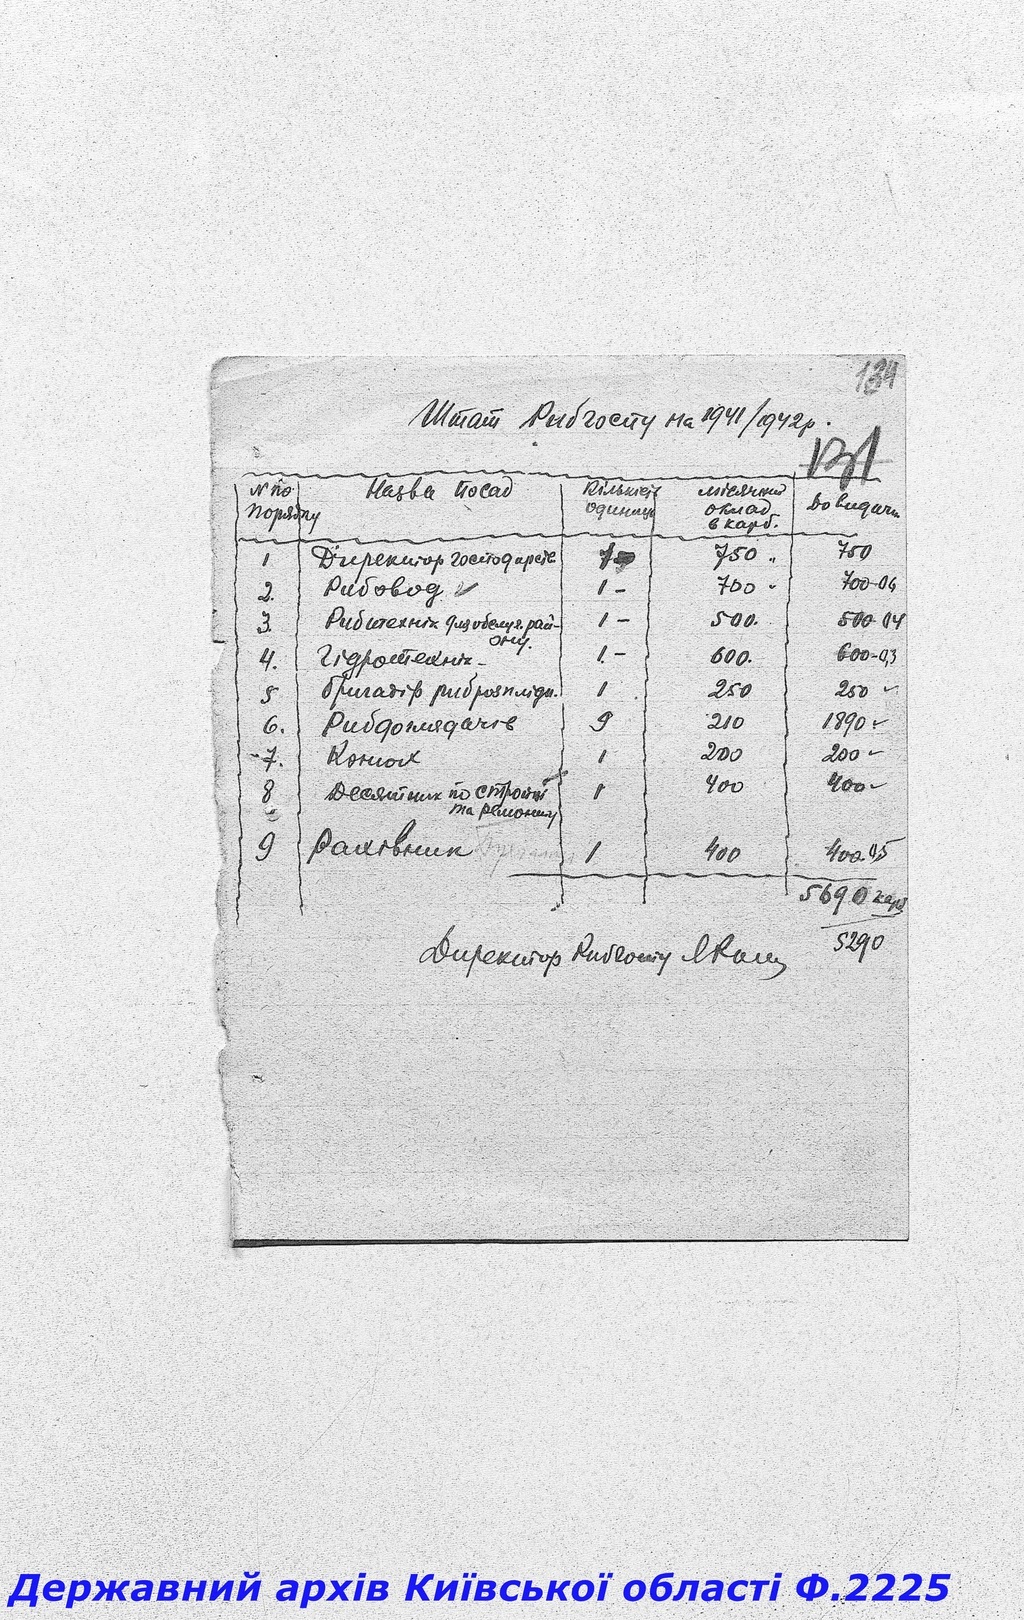 134
Штат Рибгоспу на 1941/1942 р.
№ по порядку Назва посад Кількість одиниць місячний оклад в карб. До видачи
1 Директор господарств 1 750 750
2. Рибовод 1 - 700 - 700-04
3. Рибтехнік для обслуг. району. 1 - 500. 500-04
4. Гідротехнік - 1. - 600. 600-0,3
5 Бригадір риброзплідн. 1 250 250 -
6. Рибдоглядачів 9 210 1890 -
7. Конюх 1 200 200 -
8 Десятник по строит та ремонту 1 400 400 -
9 Рахівник 1 400 400. 0,5
5690 карб
5290
Директор Рибгоспу
Державний архів Київської області Ф.2225